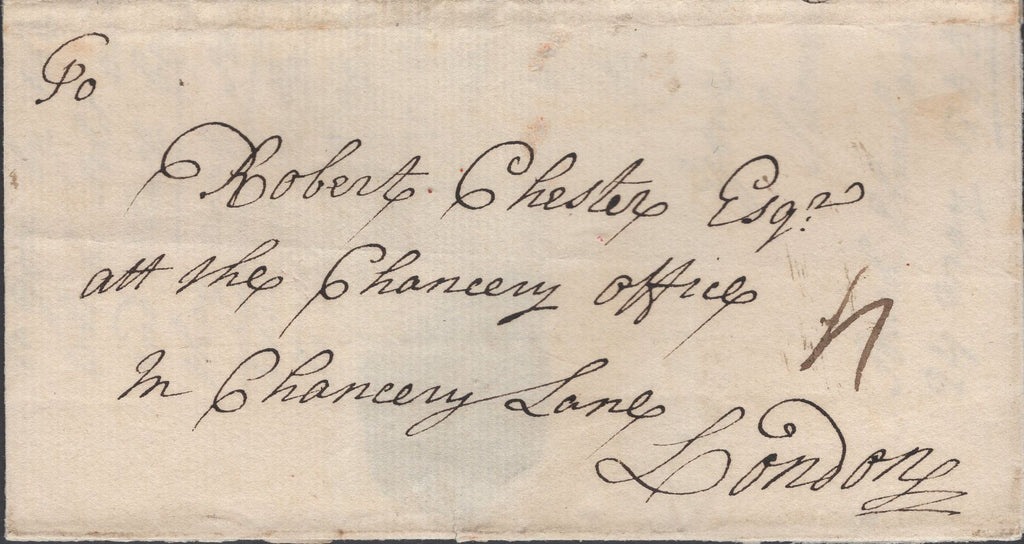 To
Robert Chester Esqr.
att the Chancery office
In Chancery Lane
London